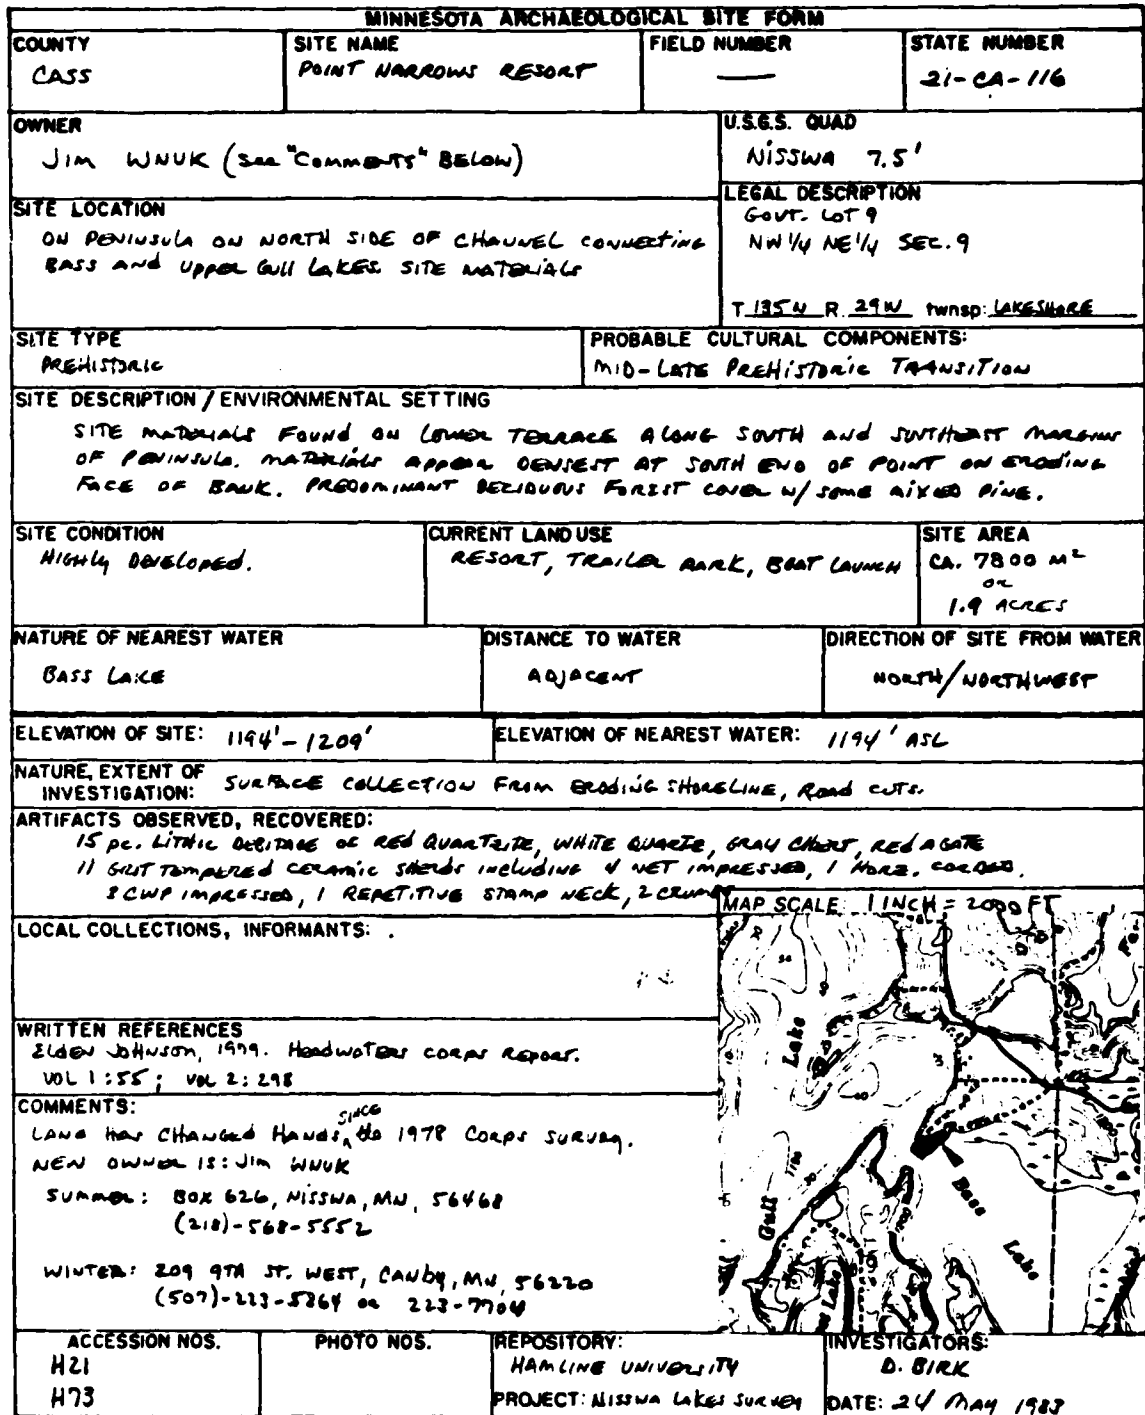 MINNESOTA ARCHAEOLOGICAL SITE FORM
COUNTY
CASS
SITE NAME
POINT NARROWS RESORT
FIELD NUMBER
—
STATE NUMBER
21-CA-116
OWNER
JIM WNUK (SEE "COMMENTS" BELOW)
U.S.G.S. QUAD
NISSWA 7.5'
LEGAL DESCRIPTION
GOVT. LOT 9
NW 1/4 NE 1/4 SEC. 9
T 135 N R 29 W twnsp: LAKESHORE
SITE LOCATION
ON PENINSULA ON NORTH SIDE OF CHANNEL CONNECTING
BASS AND UPPER GULL LAKES. SITE MATERIALS
SITE TYPE
PREHISTORIC
PROBABLE CULTURAL COMPONENTS:
MID-LATE PREHISTORIC TRANSITION
SITE DESCRIPTION / ENVIRONMENTAL SETTING
SITE MATERIALS FOUND ON LOWER TERRACE ALONG SOUTH AND SOUTHEAST MARGINS
OF PENINSULA. MATERIALS APPEAR DENSEST AT SOUTH END OF POINT ON ERODING
FACE OF BANK. PREDOMINANT DECIDUOUS FOREST COVER W/ SOME MIXED PINE.
SITE CONDITION
HIGHLY DEVELOPED.
CURRENT LAND USE
RESORT, TRAILER PARK, BOAT LAUNCH
SITE AREA
CA. 7800 M²
OR
1.9 ACRES
NATURE OF NEAREST WATER
BASS LAKE
DISTANCE TO WATER
ADJACENT
DIRECTION OF SITE FROM WATER
NORTH/NORTHWEST
ELEVATION OF SITE: 1194'-1209'
ELEVATION OF NEAREST WATER: 1194' ASL
NATURE, EXTENT OF
INVESTIGATION: SURFACE COLLECTION FROM ERODING SHORELINE, ROAD CUTS.
ARTIFACTS OBSERVED, RECOVERED:
15 pc. LITHIC DEBITAGE OF RED QUARTZITE, WHITE QUARTZ, GRAY CHERT, RED AGATE
11 GRIT TEMPERED CERAMIC SHERDS INCLUDING 4 NET IMPRESSED, 1 HORZ. CORDED,
CWP IMPRESSED, 1 REPETITIVE STAMP NECK, 2
MAP SCALE: 1 INCH = 2000 FT
LOCAL COLLECTIONS, INFORMANTS:
WRITTEN REFERENCES
ELDEN JOHNSON, 1979. HEADWATERS CORPS REPORT.
VOL 1:55; VOL 2:298
COMMENTS:
LAND HAS CHANGED HANDS SINCE THE 1978 CORPS SURVEY.
NEW OWNER IS: JIM WNUK
SUMMER: BOX 626, NISSWA, MN, 56468
(218)-568-5552
WINTER: 209 9TH ST. WEST, CANBY, MN, 56220
(507)-223-5864 OR 223-7704
Lake
Gull
Bass
Lake
Lake
ACCESSION NOS.
H21
H73
PHOTO NOS.
REPOSITORY:
HAMLINE UNIVERSITY
PROJECT: NISSWA LAKES SURVEY
INVESTIGATORS:
D. BIRK
DATE: 24 MAY 1983